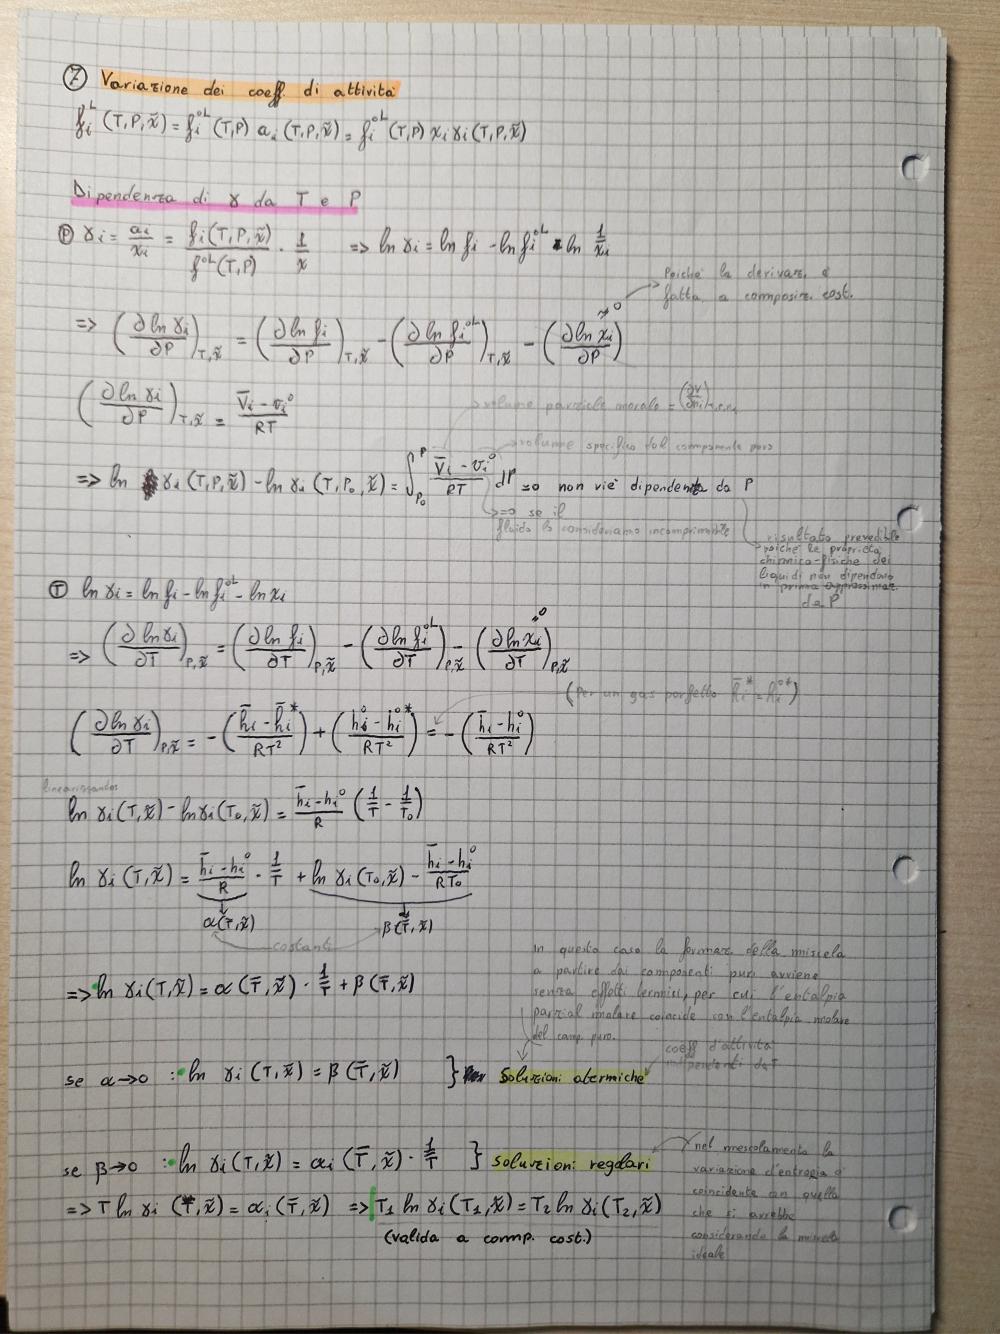 ⑦ Variazione dei coeff. di attività
f_i^L (T,P,x̃) = f_i^{oL} (T,P) a_i (T,P,x̃) = f_i^{oL} (T,P) x_i γ_i (T,P,x̃)
Dipendenza di γ da T e P
Ⓟ γ_i = a_i/x_i = f_i(T,P,x̃)/f^{oL}(T,P) · 1/x => ln γ_i = ln f_i - ln f_i^{oL} ln 1/x_i
Poiché la derivaz. è
fatta a composiz. cost.
=> (∂ ln γ_i/∂P)_{T,x̃} = (∂ ln f_i/∂P)_{T,x̃} - (∂ ln f_i^{oL}/∂P)_{T,x̃} - (∂ ln x_i/∂P) → 0
(∂ ln γ_i/∂P)_{T,x̃} = (V̄_i - v_i^o)/RT
volume parziale morale = (∂V/∂n_i)
volume specifico del componente puro
=> ln γ_i (T,P,x̃) - ln γ_i (T,P_0,x̃) = ∫_{P_0}^{P} (V̄_i - v_i^o)/RT dP =0 non vi è dipendenza da P
=0 se il
fluido lo consideriamo incomprimibile
risultato prevedibile
poiché le proprietà
chimico-fisiche dei
liquidi non dipendono
in prima approssimaz.
da P
Ⓣ ln γ_i = ln f_i - ln f_i^{oL} - ln x_i
=> (∂ ln γ_i/∂T)_{P,x̃} = (∂ ln f_i/∂T)_{P,x̃} - (∂ ln f_i^{oL}/∂T)_{P,x̃} - (∂ ln x_i/∂T)_{P,x̃} → 0
(Per un gas perfetto h̄_i^* = h_i^{o*})
(∂ ln γ_i/∂T)_{P,x̃} = -((h̄_i - h̄_i^*)/RT²) + ((h_i^o - h_i^{o*})/RT²) = -((h̄_i - h_i^o)/RT²)
linearizzando
ln γ_i (T,x̃) - ln γ_i (T_0,x̃) = (h̄_i - h_i^o)/R (1/T - 1/T_0)
ln γ_i (T,x̃) = (h̄_i - h_i^o)/R · 1/T + ln γ_i (T_0,x̃) - (h̄_i - h_i^o)/RT_0
α(T̄,x̃) β(T̄,x̃)
costanti
=> ln γ_i (T,x̃) = α(T̄,x̃) · 1/T + β(T̄,x̃)
In questo caso la formaz. della miscela
a partire dai componenti puri avviene
senza effetti termici, per cui l'entalpia
parzial molare coincide con l'entalpia molare
del comp. puro.
se α→0 : ln γ_i (T,x̃) = β(T̄,x̃) } Soluzioni atermiche
coeff d'attività
indipendenti da T
se β→0 : ln γ_i (T,x̃) = α_i (T̄,x̃) · 1/T } soluzioni regolari
=> T ln γ_i (T,x̃) = α_i (T̄,x̃) => T_1 ln γ_i (T_1,x̃) = T_2 ln γ_i (T_2,x̃)
(valida a comp. cost.)
nel mescolamento la
variazione d'entropia è
coincidente con quella
che si avrebbe
considerando la miscela
ideale